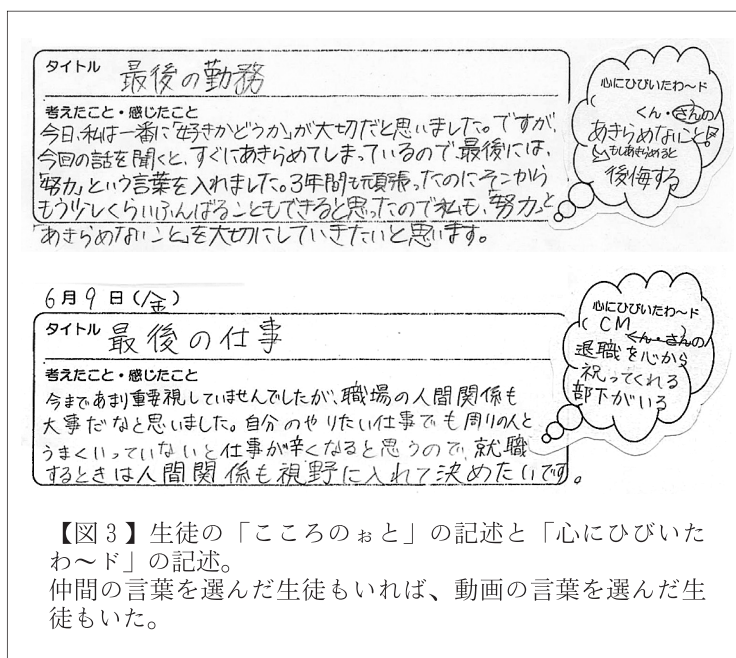 タイトル 最後の勤務
考えたこと・感じたこと
今日、私は一番に「好きかどうか」が大切だと思いました。ですが、
今回の話を聞くと、すぐにあきらめてしまっているので、最後には、
「努力」という言葉を入れました。3年間も頑張ったのにそこから
もう少しくらいふんばることもできると思ったので私も、「努力」と
「あきらめないこと」を大切にしていきたいと思います。
心にひびいたわ〜ド
(
くん・さんの
あきらめないこと。
もしあきらめると
後悔する
6月9日(金)
タイトル 最後の仕事
考えたこと・感じたこと
今まであまり重要視していませんでしたが、職場の人間関係も
大事だなと思いました。自分のやりたい仕事でも周りの人と
うまくいっていないと仕事が辛くなると思うので、就職
するときは人間関係も視野に入れて決めたいです。
心にひびいたわ〜ド
( CM )
くん・さんの
退職を心から
祝ってくれる
部下がいる
【図3】生徒の「こころのぉと」の記述と「心にひびいた
わ〜ド」の記述。
仲間の言葉を選んだ生徒もいれば、動画の言葉を選んだ生
徒もいた。